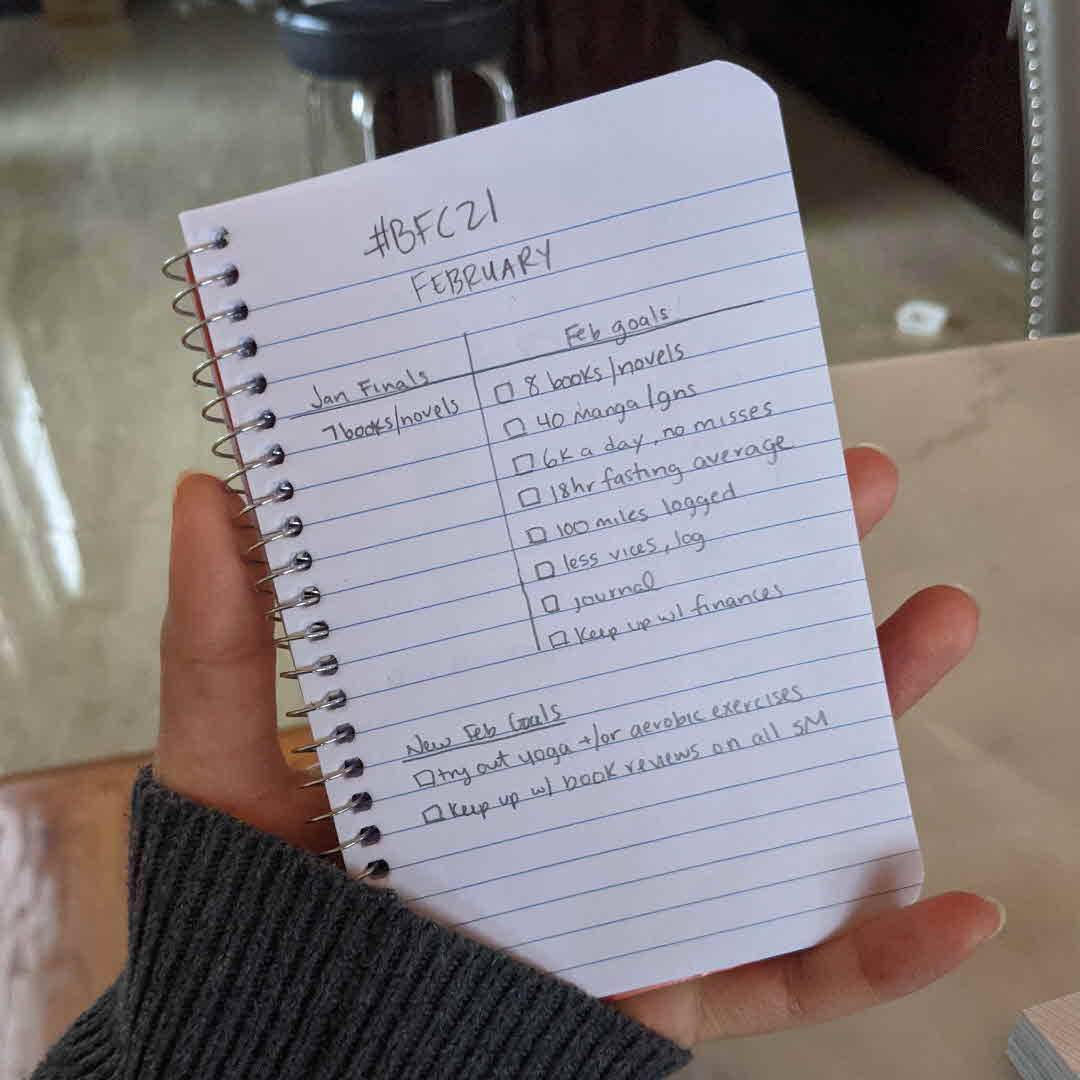 #BFC21
FEBRUARY
Jan Finals
7 books/novels
Feb goals
8 books/novels
40 manga/gns
6K a day, no misses
18hr fasting average
100 miles logged
less vices, log
journal
Keep up w/ finances
New Feb Goals
try out yoga +/or aerobic exercises
Keep up w/ book reviews on all SM